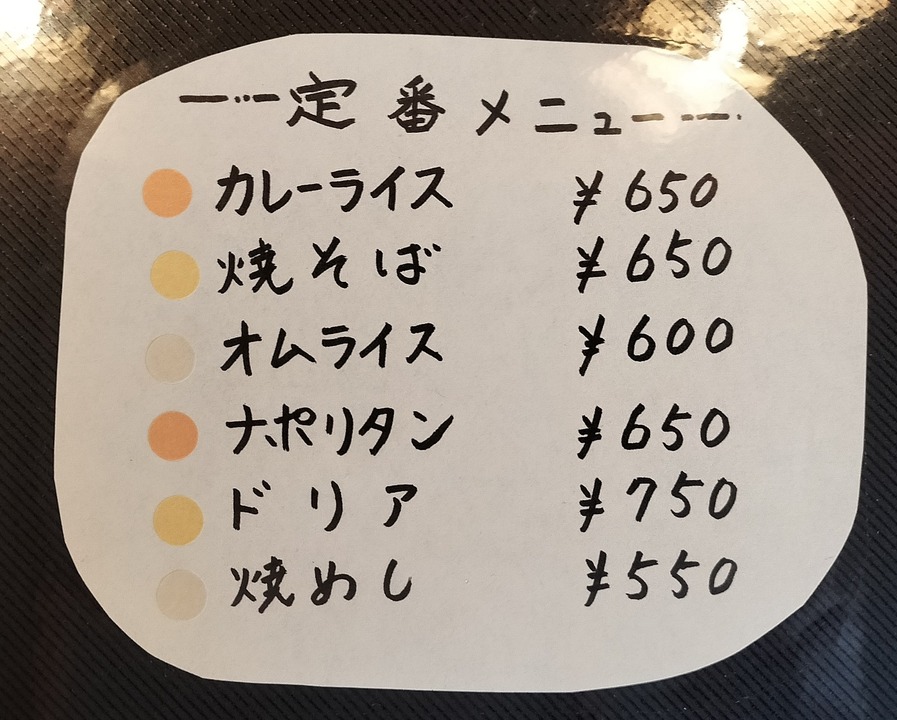 定番メニュー
カレーライス ¥650
焼そば ¥650
オムライス ¥600
ナポリタン ¥650
ドリア ¥750
焼めし ¥550